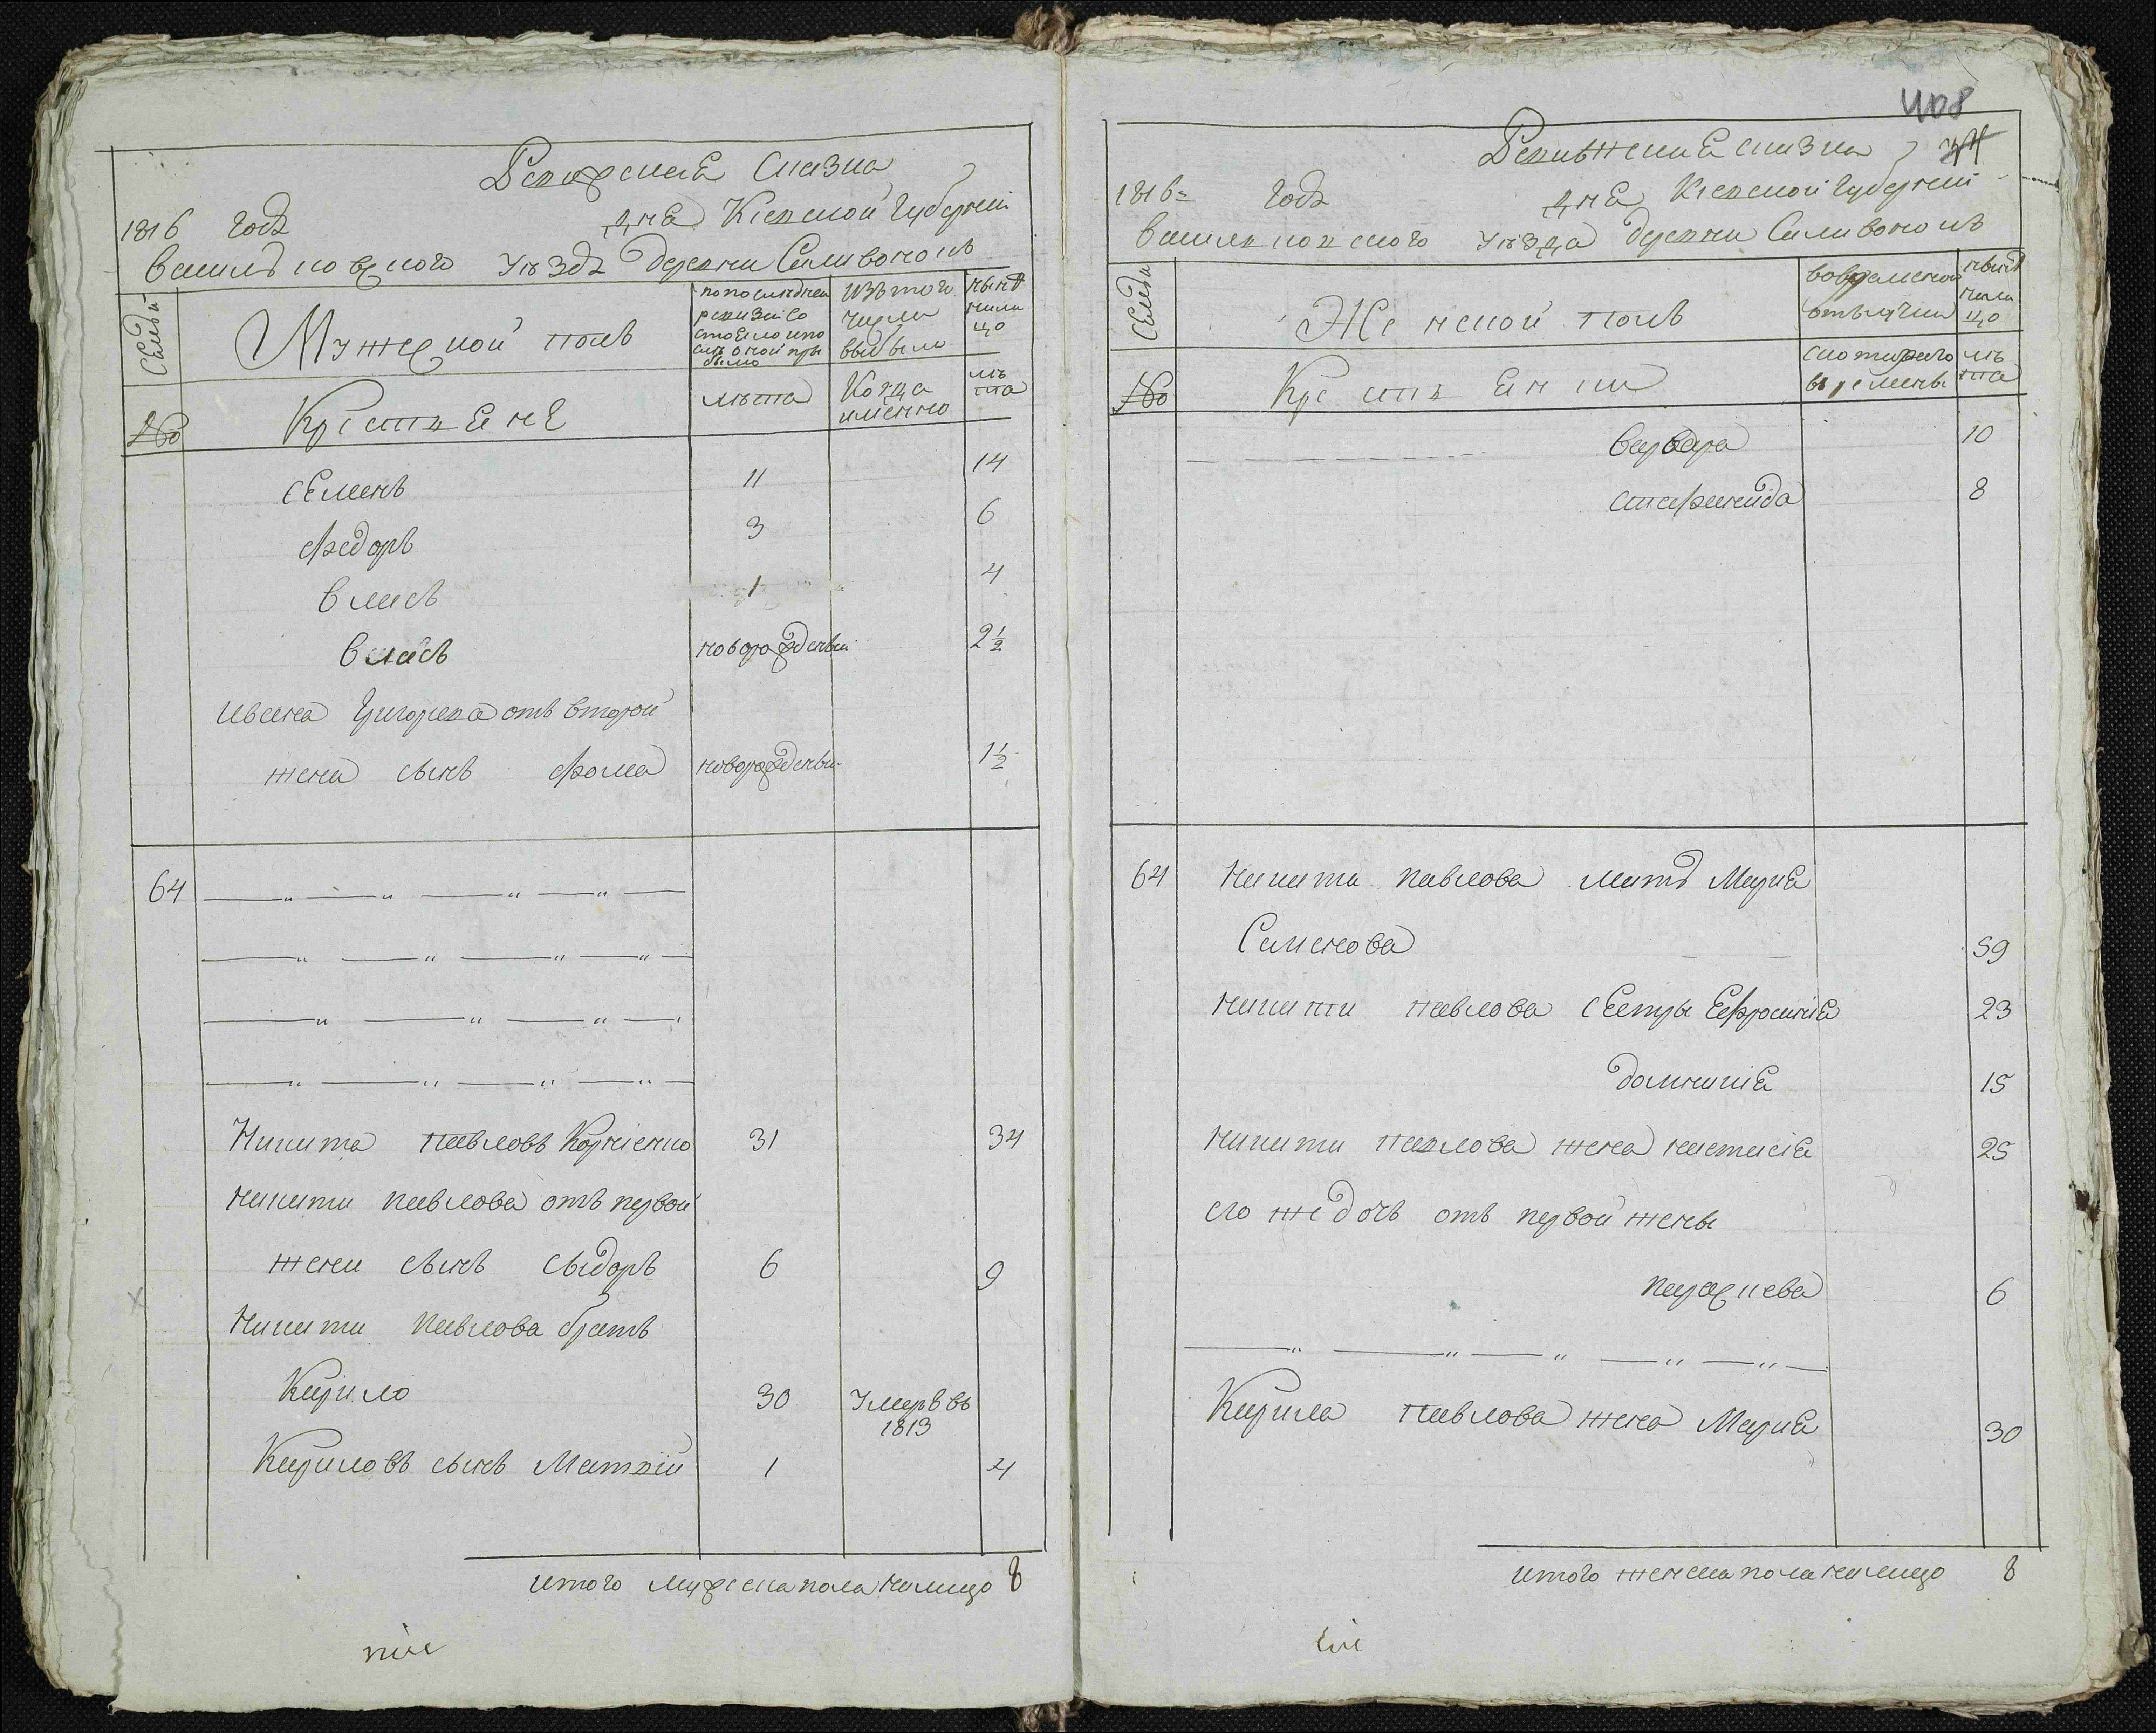 Ревижская Сказка
1816 годa дня Кіевской Губерніи
Васильковского Уезда деревни Саливонокъ
Семьи
Мужеской полъ
по последней ревизіи состояло и после оной прибыло
Изъ того числа выбыло
Ныне на лицо
№
Крестьяне
лѣта
Когда именно
лѣта
Семенъ 11 14
Федоръ 3 6
Власъ 1 4
Власъ новорожденный 2½
Ивана Григорева отъ второй
жена сынъ Фома новорожденный 1½
64
Никита Павловъ Корніенко 31 34
Никити Павлова отъ первой
жени сынъ Сыдоръ 6 9
Никити Павлова братъ
Кирило 30 Умеръ въ 1813
Кириловъ сынъ Матвій 1 4
итого мужеска пола налицо 8
408
Ревижская сказка
1816 года дня Кіевской Губерніи
Васильковского Уезда деревни Саливонокъ
Семьи
Женской полъ
во временной отлучки
ныне налицо
№
Крестьянки
с которого времены
лѣта
Варвара 10
Стефанида 8
64 Никита Павлова мать Марія
Семенова 59
Никити Павлова сестры Ефросинія 23
Домникія 15
Никити Павлова жена Настасія 25
его же дочь отъ первой жены
Параскева 6
Кирила Павлова жена Марія 30
итого женска пола налицо 8